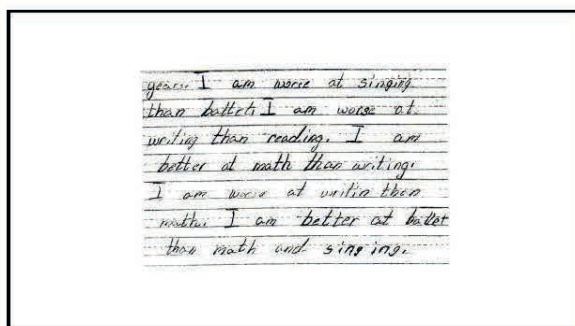 gears. I am worse at singing
than ballet I am worse at
writing than reading. I am
better at math than writing.
I am worse at writin than
math. I am better at ballet
than math and singing.